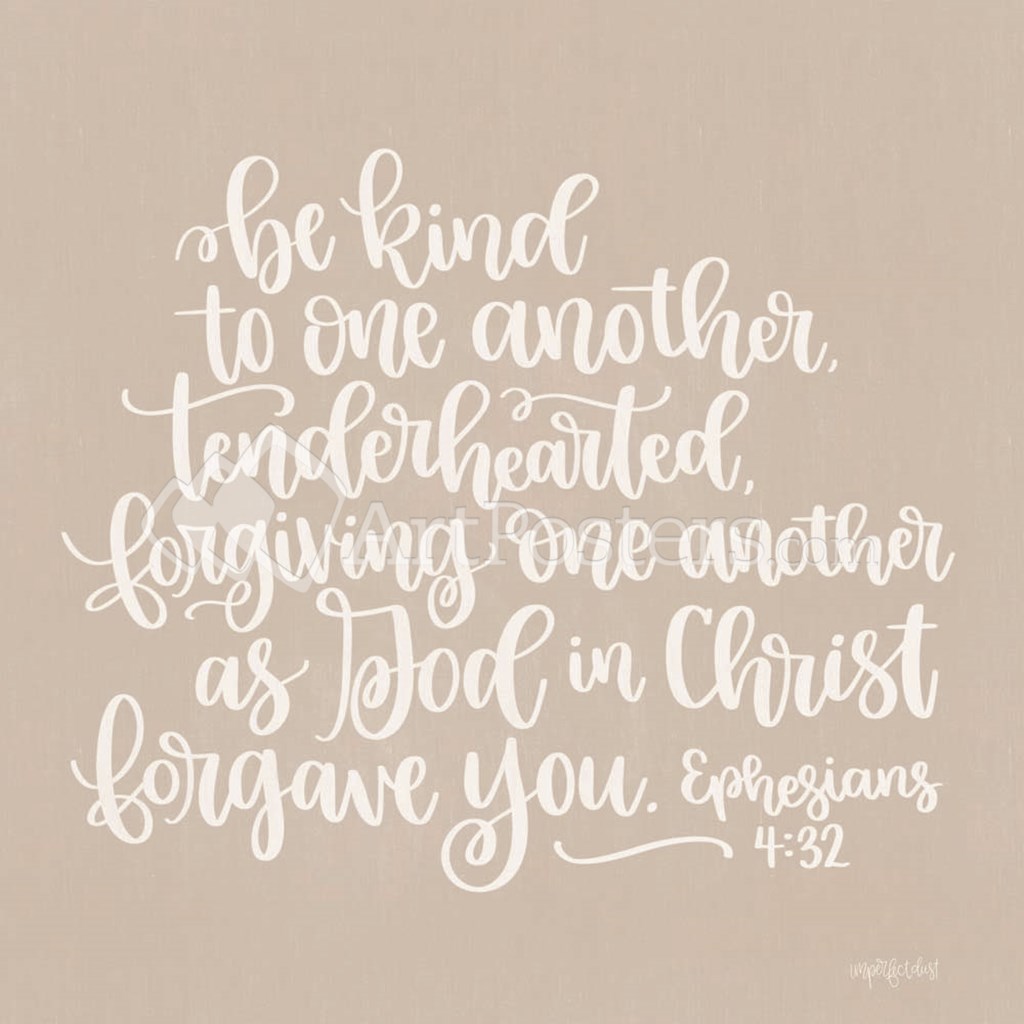 be kind
to one another,
tenderhearted,
forgiving one another
ArtPosters.com
as God in Christ
forgave you. Ephesians
4:32
imperfectdust